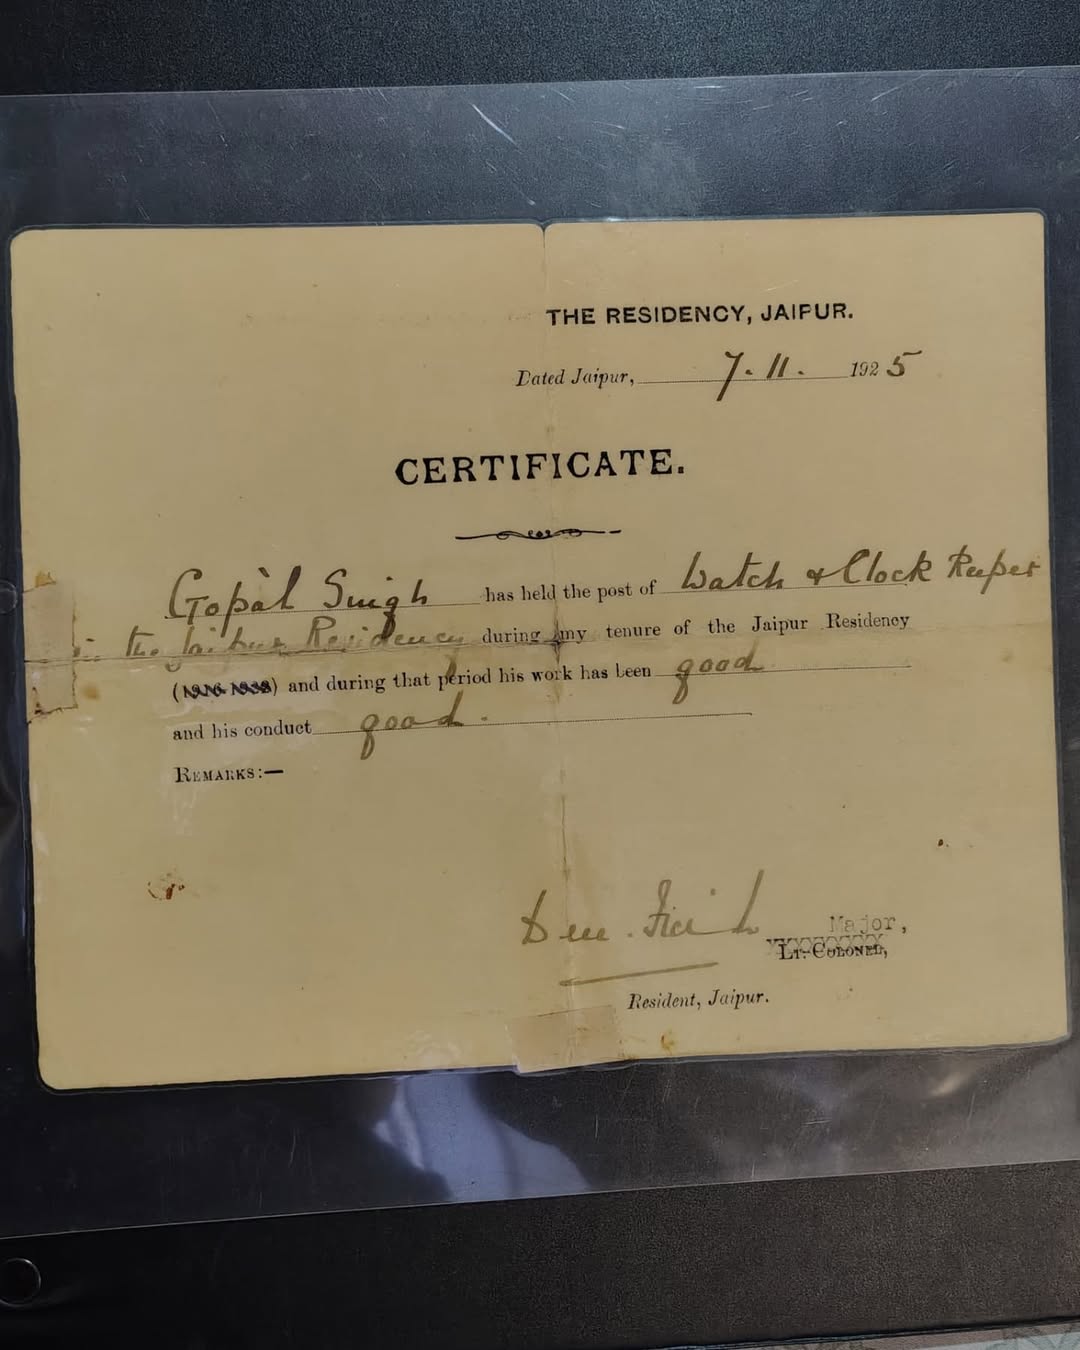 THE RESIDENCY, JAIPUR.
Dated Jaipur, 7. 11. 1925
CERTIFICATE.
Gopàl Singh has held the post of Watch & Clock Keeper
in the Jaipur Residency during my tenure of the Jaipur Residency
( ) and during that period his work has been good
and his conduct good.
REMARKS:—
Major,
LT.-COLONEL,
Resident, Jaipur.